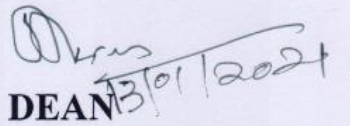 13/01/2021
DEAN